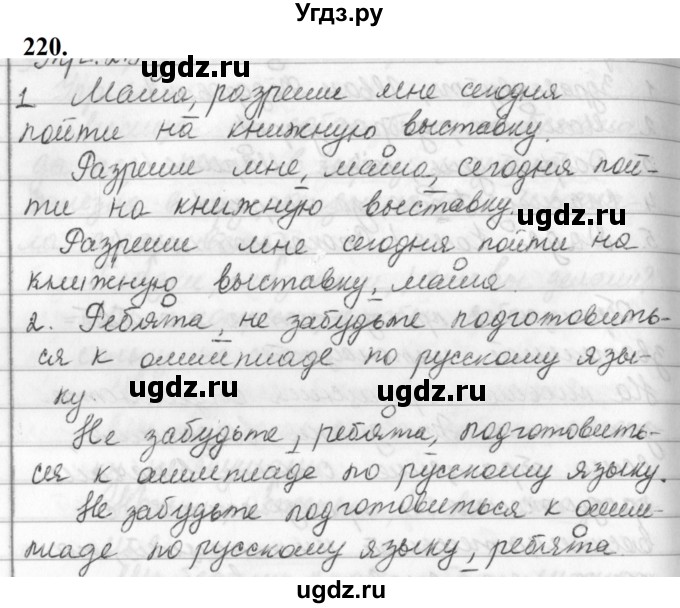 Угдз.ру
220.
Упр.
ugdz.ru
1 Маша, разреши мне сегодня
пойти на книжную выставку.
Разреши мне, маша, сегодня пой-
ти на книжную выставку.
ugdz.ru
Разреши мне сегодня пойти на
книжную выставку, маша.
2. Ребята, не забудьте подготовить-
ся к олимпиаде по русскому язы-
ку
ugdz.ru ugdz.ru
Не забудьте, ребята, подготовить-
ся к олимпиаде по русскому языку.
Не забудьте подготовиться к олим-
пиаде по русскому языку, ребята.
ugdz.ru